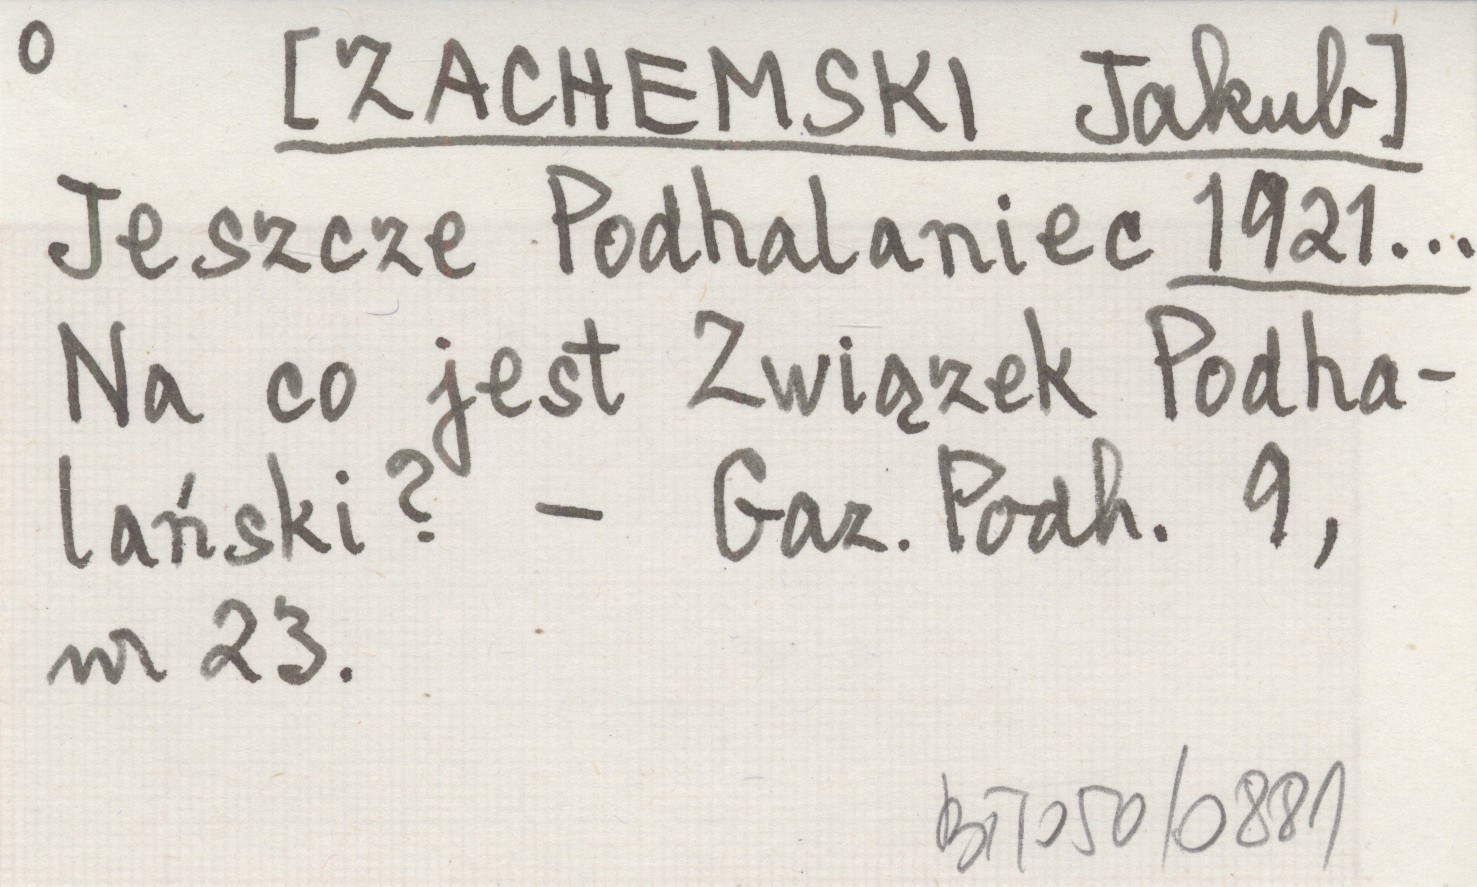 o [ZACHEMSKI Jakub]
Jeszcze Podhalaniec 1921...
Na co jest Związek Podha-
lański? - Gaz. Podh. 9,
nr 23.
BT1050/0881